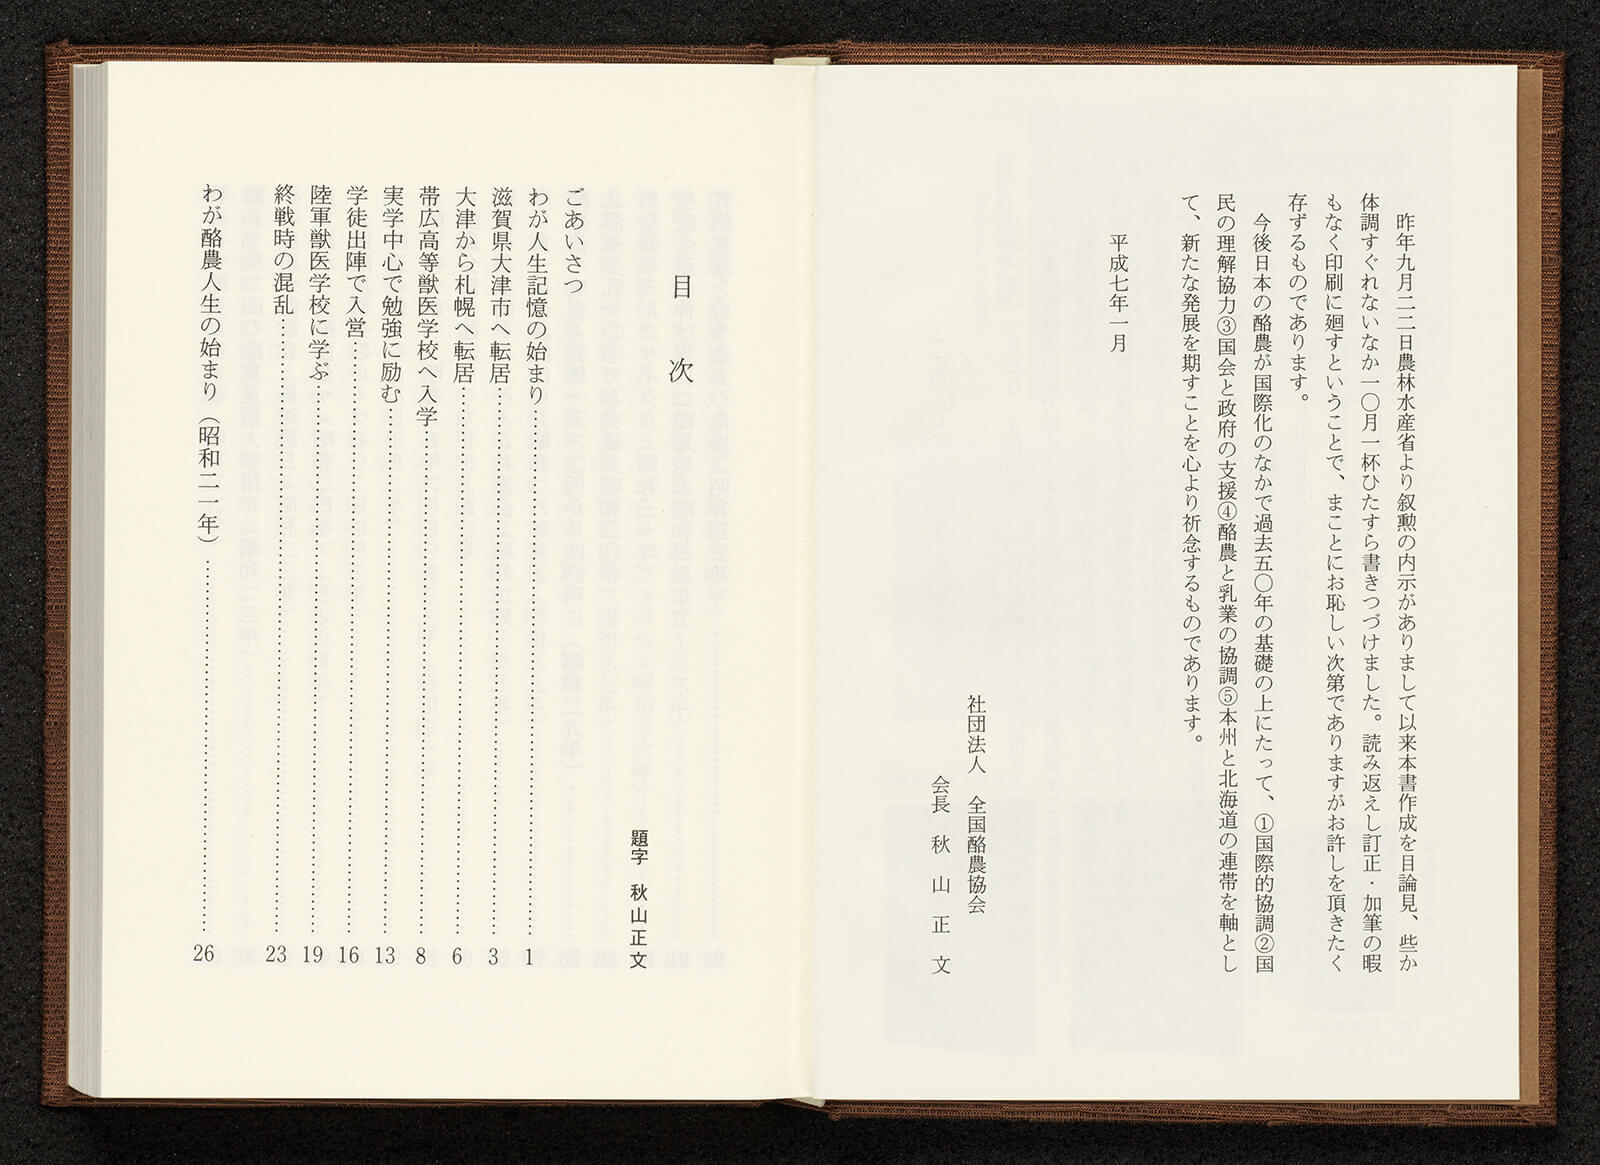 昨年九月二二日農林水産省より叙勲の内示がありまして以来本書作成を目論見、些か
体調すぐれないなか一〇月一杯ひたすら書きつづけました。読み返えし訂正・加筆の暇
もなく印刷に廻すということで、まことにお恥しい次第でありますがお許しを頂きたく
存ずるものであります。
今後日本の酪農が国際化のなかで過去五〇年の基礎の上にたって、①国際的協調②国
民の理解協力③国会と政府の支援④酪農と乳業の協調⑤本州と北海道の連帯を軸とし
て、新たな発展を期すことを心より祈念するものであります。
平成七年一月
社団法人 全国酪農協会
会長 秋山正文
目次
題字 秋山正文
ごあいさつ
わが人生記憶の始まり…………1
滋賀県大津市へ転居…………3
大津から札幌へ転居…………6
帯広高等獣医学校へ入学…………8
実学中心で勉強に励む…………13
学徒出陣で入営…………16
陸軍獣医学校に学ぶ…………19
終戦時の混乱…………23
わが酪農人生の始まり(昭和二一年)…………26